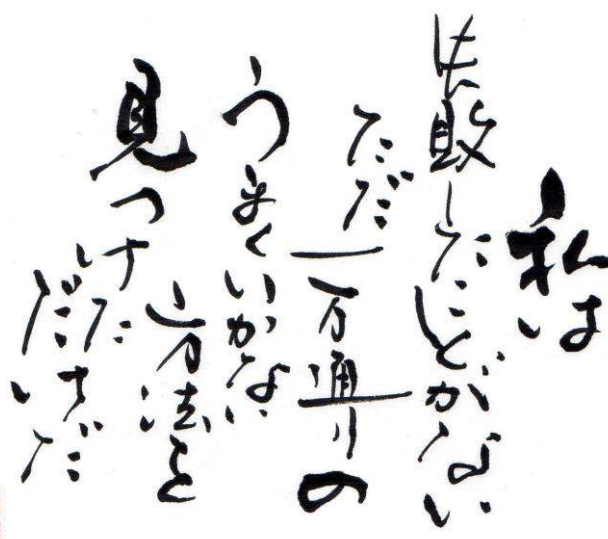 私は
失敗したことがない
ただ一万通りの
うまくいかない
方法を
見つけた
だけだ